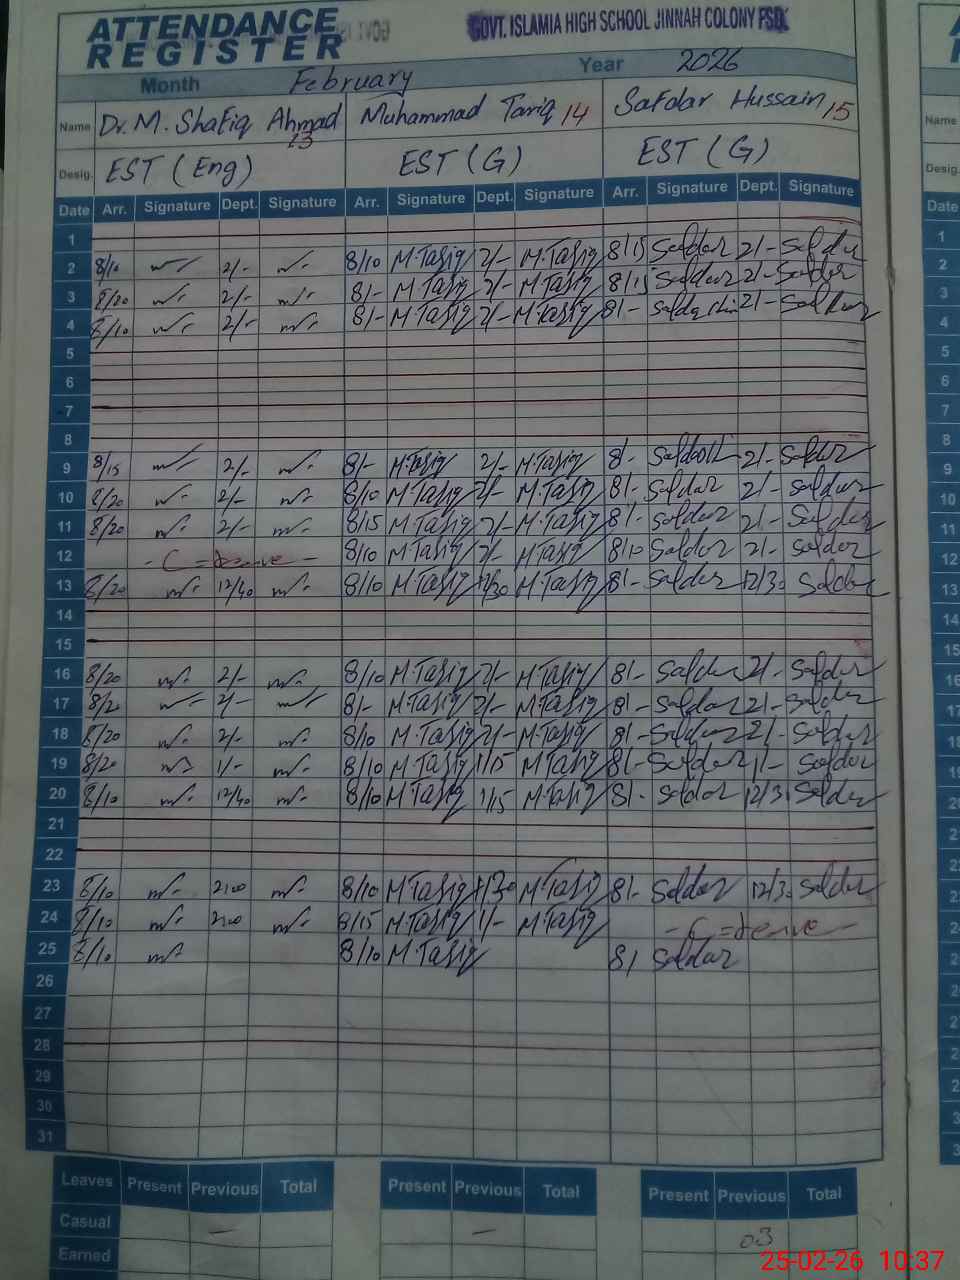 ATTENDANCE
REGISTER
GOVT. ISLAMIA HIGH SCHOOL JINNAH COLONY FSD.
Month February Year 2026
Name Dr. M. Shafiq Ahmad 13 Muhammad Tariq 14 Safdar Hussain 15 Name
Desig. EST (Eng) EST (G) EST (G) Desig.
Date Arr. Signature Dept. Signature Arr. Signature Dept. Signature Arr. Signature Dept. Signature Date
1
2 8/10 2/- 8/10 M.Tariq 2/- M.Tariq 8/15 Safdar 2/- Safdar
3 8/20 2/- 8/- M.Tariq 2/- M.Tariq 8/15 Safdar 2/- Safdar
4 8/10 2/- 8/- M.Tariq 2/- M.Tariq 8/- 2/-
5
6
7
8
9 8/15 2/- 8/- M.Tariq 2/- M.Tariq 8/- 2/- Safdar
10 8/20 2/- 8/10 M.Tariq 2/- M.Tariq 8/- Safdar 2/- Safdar
11 8/20 2/- 8/15 M.Tariq 2/- M.Tariq 8/- Safdar 2/- Safdar
12 - C = Leave - 8/10 M.Tariq 2/- M.Tariq 8/10 Safdar 2/- Safdar
13 8/20 12/40 8/10 M.Tariq 12/30 M.Tariq 8/- Safdar 12/30 Safdar
14
15
16 8/20 2/- 8/10 M.Tariq 2/- M.Tariq 8/- Safdar 2/- Safdar
17 8/20 2/- 8/- M.Tariq 2/- M.Tariq 8/- Safdar 2/- Safdar
18 8/20 2/- 8/10 M.Tariq 2/- M.Tariq 8/- Safdar 2/- Safdar
19 8/20 1/- 8/10 M.Tariq 1/15 M.Tariq 8/- Safdar 1/- Safdar
20 8/10 12/40 8/10 M.Tariq 1/15 M.Tariq 8/- Safdar 12/3 Safdar
21
22
23 8/10 2100 8/10 M.Tariq M.Tariq 8/- Safdar 12/30 Safdar
24 8/10 2100 8/15 M.Tariq 1/- M.Tariq - C = Leave -
25 8/10 8/10 M.Tariq 8/ Safdar
26
27
28
29
30
31
Leaves Present Previous Total Present Previous Total Present Previous Total
Casual - - 03
Earned
25-02-26 10:37